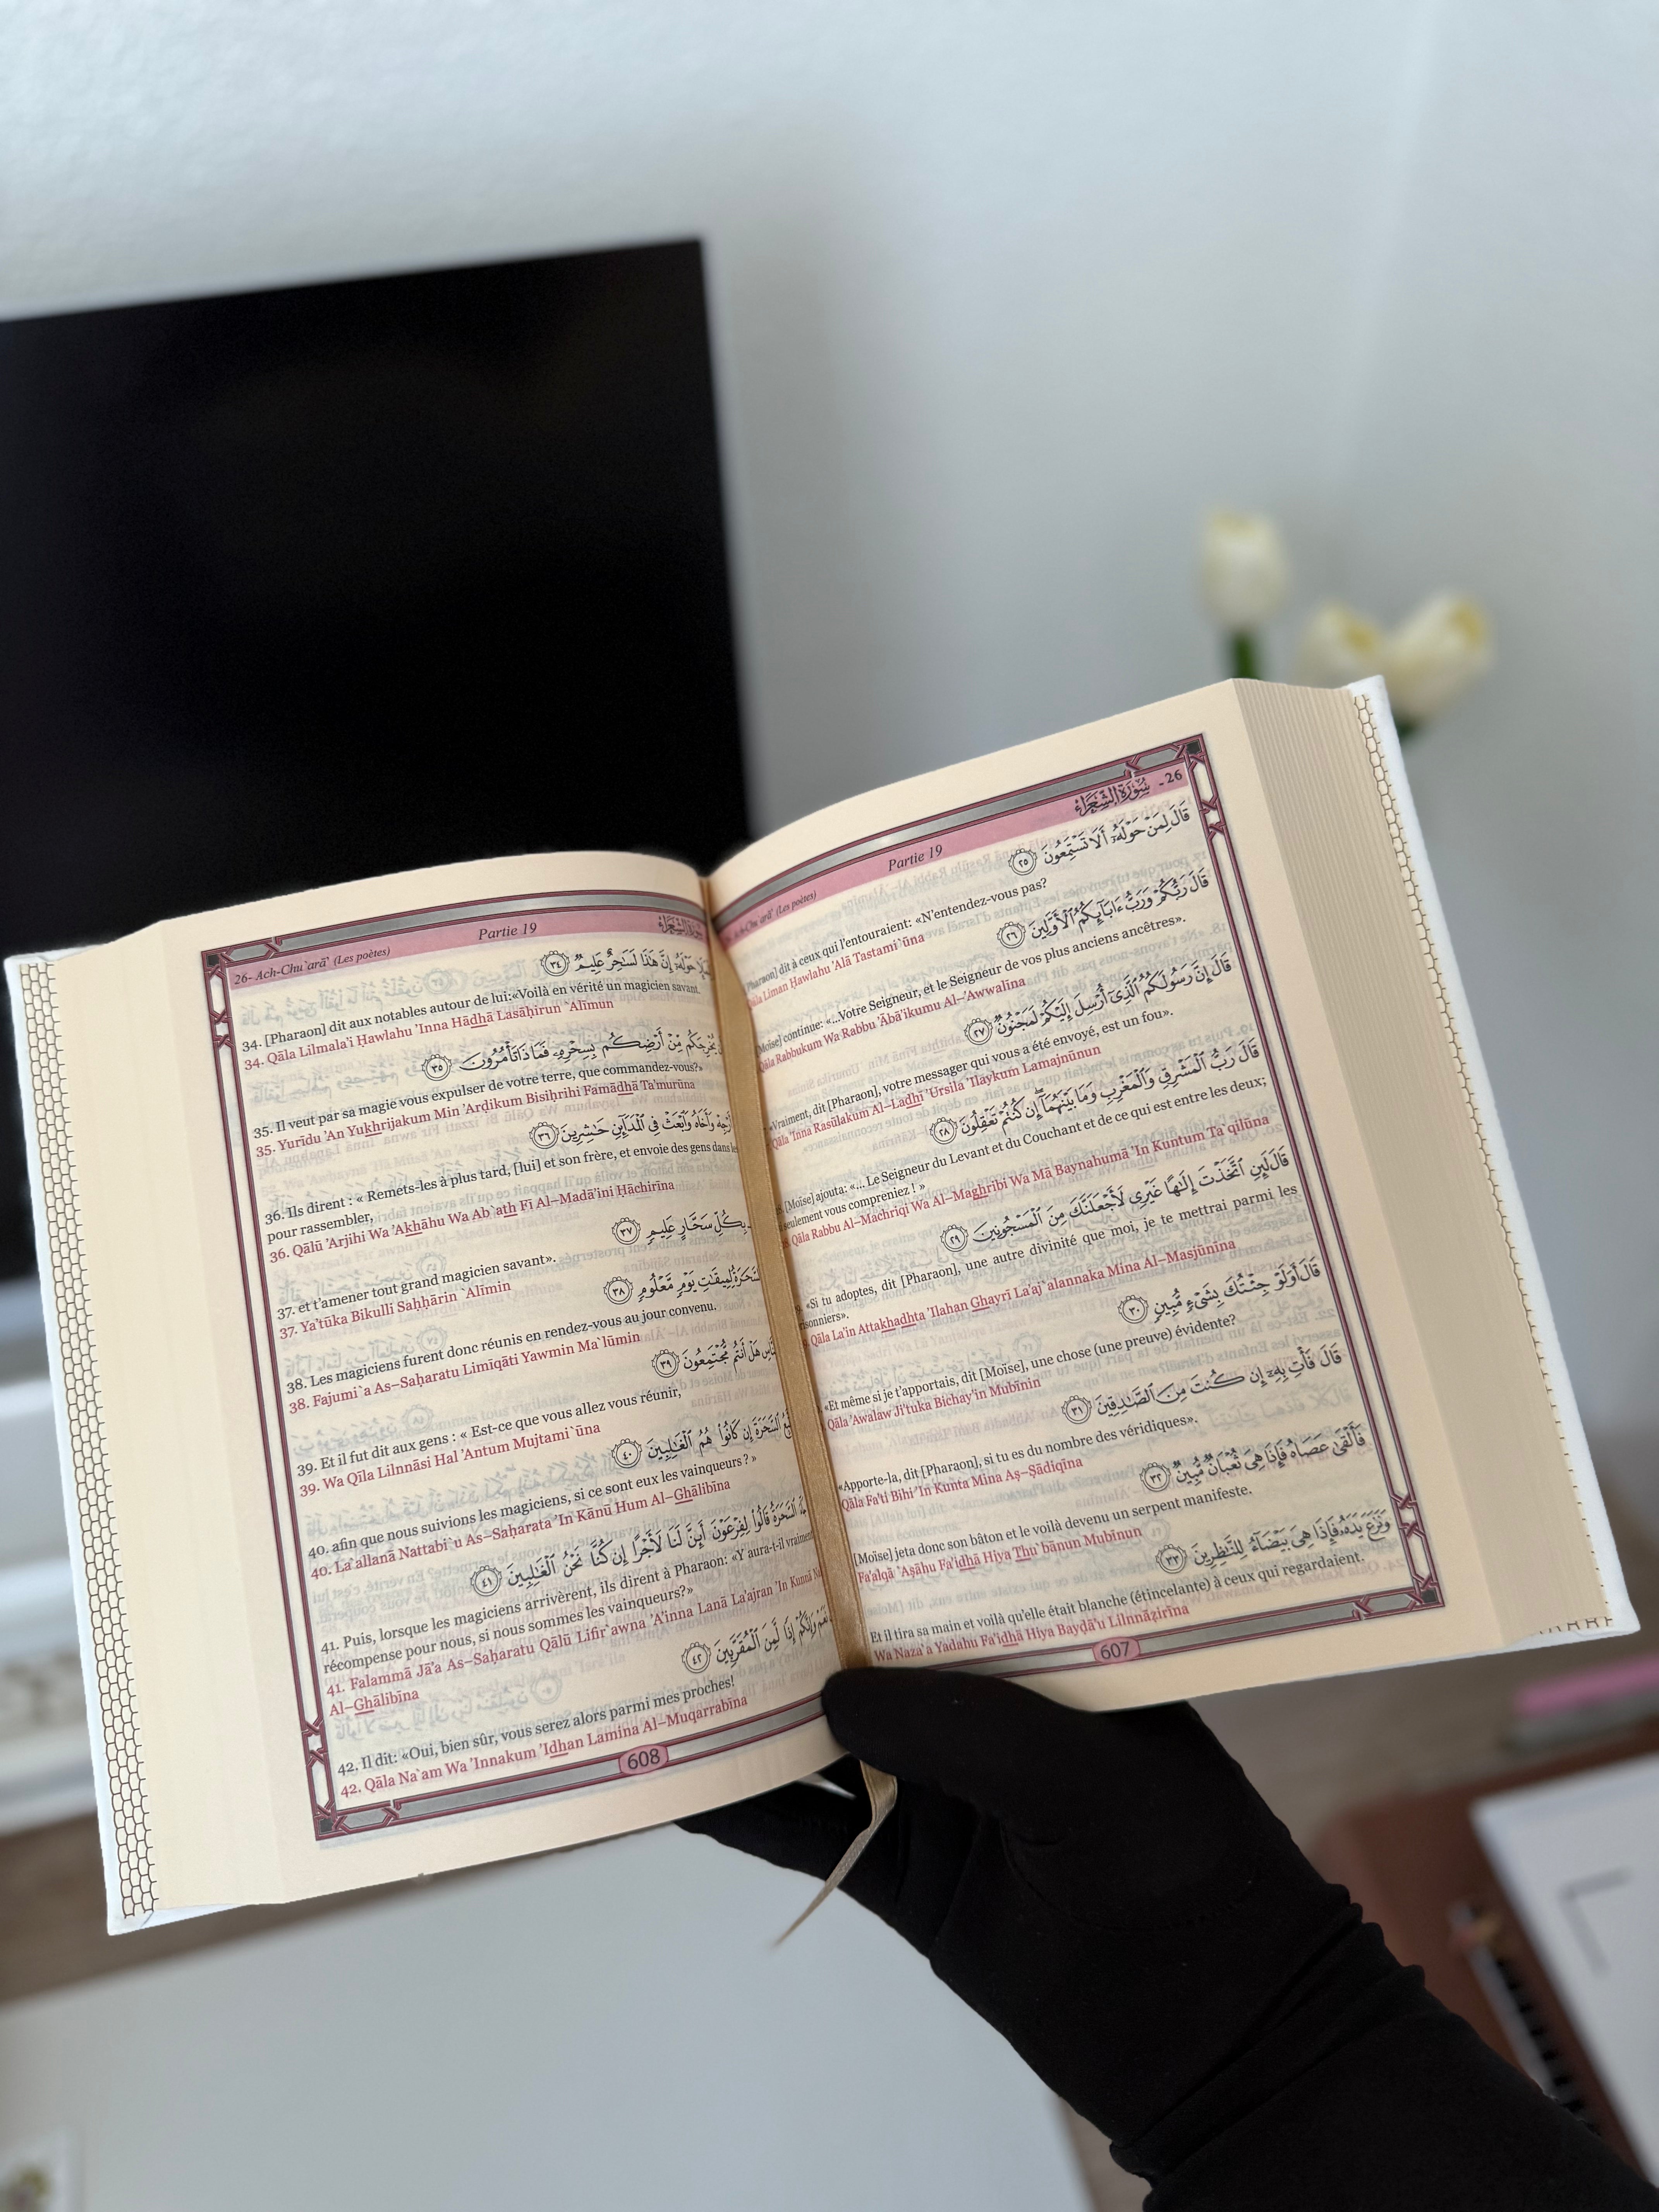 26- Ach-Chu`arâ' (Les poètes) Partie 19 سُورَةُ الشُّعَرَاءِ - 26
قَالَ لِمَنْ حَوْلَهُۥٓ أَلَا تَسْتَمِعُونَ ٢٥
[Pharaon] dit à ceux qui l'entouraient: «N'entendez-vous pas?
Qāla Liman Ḥawlahu 'Alā Tastami`ūna
قَالَ رَبُّكُمْ وَرَبُّ ءَابَآئِكُمُ ٱلْأَوَّلِينَ ٢٦
[Moïse] continue: «...Votre Seigneur, et le Seigneur de vos plus anciens ancêtres».
Qāla Rabbukum Wa Rabbu 'Ābā'ikumu Al–'Awwalīna
قَالَ إِنَّ رَسُولَكُمُ ٱلَّذِىٓ أُرْسِلَ إِلَيْكُمْ لَمَجْنُونٌ ٢٧
«Vraiment, dit [Pharaon], votre messager qui vous a été envoyé, est un fou».
Qāla 'Inna Rasūlakum Al–Ladhī 'Ursila 'Ilaykum Lamajnūnun
قَالَ رَبُّ ٱلْمَشْرِقِ وَٱلْمَغْرِبِ وَمَا بَيْنَهُمَآ إِن كُنتُمْ تَعْقِلُونَ ٢٨
[Moïse] ajouta: «... Le Seigneur du Levant et du Couchant et de ce qui est entre les deux;
seulement vous compreniez ! »
Qāla Rabbu Al–Machriqi Wa Al–Maghribi Wa Mā Baynahumā 'In Kuntum Ta`qilūna
قَالَ لَئِنِ ٱتَّخَذْتَ إِلَٰهًا غَيْرِى لَأَجْعَلَنَّكَ مِنَ ٱلْمَسْجُونِينَ ٢٩
«Si tu adoptes, dit [Pharaon], une autre divinité que moi, je te mettrai parmi les
Qāla La'in Attakhadhta 'Ilahan Ghayrī La'aj`alannaka Mina Al–Masjūnīna
قَالَ أَوَلَوْ جِئْتُكَ بِشَىْءٍ مُّبِينٍ ٣٠
«Et même si je t'apportais, dit [Moïse], une chose (une preuve) évidente?
Qāla 'Awalaw Ji'tuka Bichay'in Mubīnin
قَالَ فَأْتِ بِهِۦٓ إِن كُنتَ مِنَ ٱلصَّٰدِقِينَ ٣١
«Apporte-la, dit [Pharaon], si tu es du nombre des véridiques».
Qāla Fa'ti Bihi 'In Kunta Mina Aṣ–Ṣādiqīna
فَأَلْقَىٰ عَصَاهُ فَإِذَا هِىَ ثُعْبَانٌ مُّبِينٌ ٣٢
[Moïse] jeta donc son bâton et le voilà devenu un serpent manifeste.
Fa'alqá `Aṣāhu Fa'idhā Hiya Thu`bānun Mubīnun
وَنَزَعَ يَدَهُۥ فَإِذَا هِىَ بَيْضَآءُ لِلنَّٰظِرِينَ ٣٣
Et il tira sa main et voilà qu'elle était blanche (étincelante) à ceux qui regardaient.
Wa Naza`a Yadahu Fa'idhā Hiya Bayḍā'u Lilnnāẓirīna
607
26- Ach-Chu`arā' (Les poètes) Partie 19 سُورَةُ الشُّعَرَاءِ
حَوْلَهُۥٓ إِنَّ هَٰذَا لَسَٰحِرٌ عَلِيمٌ ٣٤
34. [Pharaon] dit aux notables autour de lui:«Voilà en vérité un magicien savant.
34. Qāla Lilmala'i Ḥawlahu 'Inna Hādhā Lasāḥirun `Alīmun
يُخْرِجَكُم مِّنْ أَرْضِكُم بِسِحْرِهِۦ فَمَاذَا تَأْمُرُونَ ٣٥
35. Il veut par sa magie vous expulser de votre terre, que commandez-vous?»
35. Yurīdu 'An Yukhrijakum Min 'Arḍikum Bisiḥrihi Famādhā Ta'murūna
أَرْجِهْ وَأَخَاهُ وَٱبْعَثْ فِى ٱلْمَدَآئِنِ حَٰشِرِينَ ٣٦
36. Ils dirent : « Remets-les à plus tard, [lui] et son frère, et envoie des gens dans les
pour rassembler,
36. Qālū 'Arjihi Wa 'Akhāhu Wa Ab`ath Fī Al–Madā'ini Ḥāchirīna
بِكُلِّ سَحَّارٍ عَلِيمٍ ٣٧
37. et t'amener tout grand magicien savant».
37. Ya'tūka Bikulli Saḥḥārin `Alīmin
ٱلسَّحَرَةُ لِمِيقَٰتِ يَوْمٍ مَّعْلُومٍ ٣٨
38. Les magiciens furent donc réunis en rendez-vous au jour convenu.
38. Fajumi`a As–Saḥaratu Limīqāti Yawmin Ma`lūmin
هَلْ أَنتُم مُّجْتَمِعُونَ ٣٩
39. Et il fut dit aux gens : « Est-ce que vous allez vous réunir,
39. Wa Qīla Lilnnāsi Hal 'Antum Mujtami`ūna
ٱلسَّحَرَةَ إِن كَانُوا۟ هُمُ ٱلْغَٰلِبِينَ ٤٠
40. afin que nous suivions les magiciens, si ce sont eux les vainqueurs ? »
40. La`allanā Nattabi`u As–Saḥarata 'In Kānū Hum Al–Ghālibīna
ٱلسَّحَرَةُ قَالُوا۟ لِفِرْعَوْنَ أَئِنَّ لَنَا لَأَجْرًا إِن كُنَّا نَحْنُ ٱلْغَٰلِبِينَ ٤١
41. Puis, lorsque les magiciens arrivèrent, ils dirent à Pharaon: «Y aura-t-il vraiment
récompense pour nous, si nous sommes les vainqueurs?»
41. Falammā Jā'a As–Saḥaratu Qālū Lifir`awna 'A'inna Lanā La'ajran 'In Kunnā
Al–Ghālibīna
نَعَمْ وَإِنَّكُمْ إِذًا لَّمِنَ ٱلْمُقَرَّبِينَ ٤٢
42. Il dit: «Oui, bien sûr, vous serez alors parmi mes proches!
42. Qāla Na`am Wa 'Innakum 'Idhan Lamina Al–Muqarrabīna
608